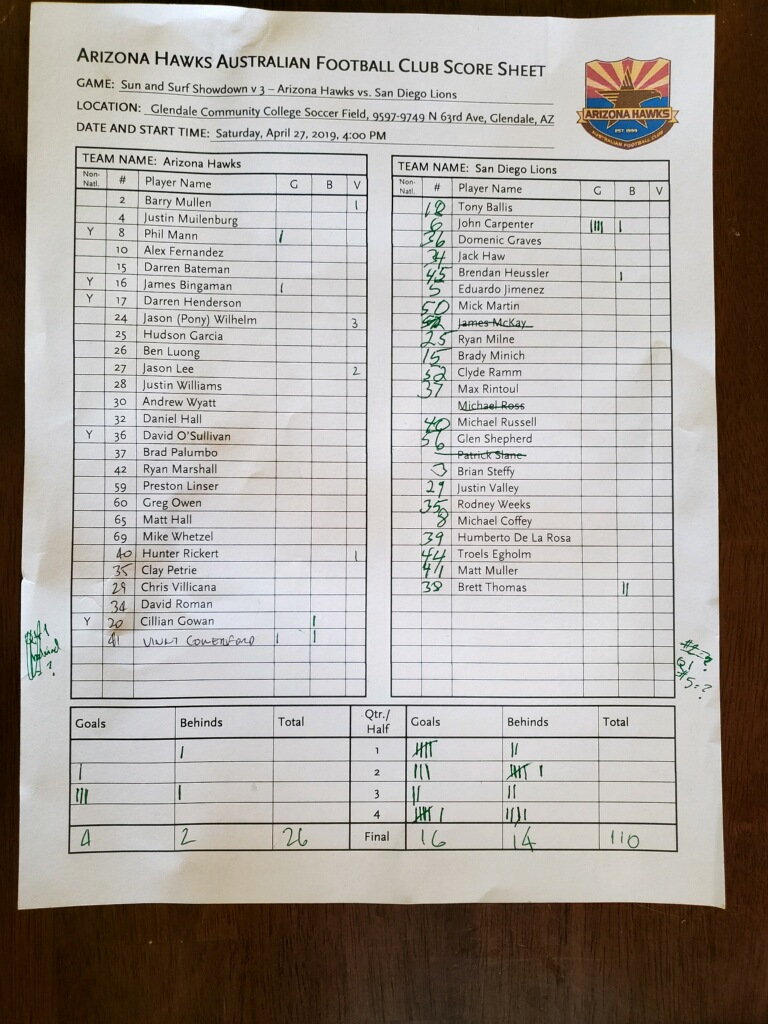 ARIZONA HAWKS AUSTRALIAN FOOTBALL CLUB SCORE SHEET
GAME: Sun and Surf Showdown v 3 – Arizona Hawks vs. San Diego Lions
LOCATION: Glendale Community College Soccer Field, 9597-9749 N 63rd Ave, Glendale, AZ
DATE AND START TIME: Saturday, April 27, 2019, 4:00 PM
ARIZONA HAWKS
EST. 1999
AUSTRALIAN FOOTBALL CLUB
TEAM NAME: Arizona Hawks
Non-Natl. # Player Name G B V
2 Barry Mullen 1
4 Justin Muilenburg
Y 8 Phil Mann |
10 Alex Fernandez
15 Darren Bateman
Y 16 James Bingaman |
Y 17 Darren Henderson
24 Jason (Pony) Wilhelm 3
25 Hudson Garcia
26 Ben Luong
27 Jason Lee 2
28 Justin Williams
30 Andrew Wyatt
32 Daniel Hall
Y 36 David O'Sullivan
37 Brad Palumbo
42 Ryan Marshall
59 Preston Linser
60 Greg Owen
65 Matt Hall
69 Mike Whetzel
40 Hunter Rickert 1
35 Clay Petrie
29 Chris Villicana
34 David Roman
Y 20 Cillian Gowan |
41 | |
TEAM NAME: San Diego Lions
Non-Natl. # Player Name G B V
Tony Ballis
6 John Carpenter |||| |
36 Domenic Graves
34 Jack Haw
45 Brendan Heussler |
5 Eduardo Jimenez
50 Mick Martin
James McKay
25 Ryan Milne
15 Brady Minich
52 Clyde Ramm
37 Max Rintoul
Michael Ross
40 Michael Russell
56 Glen Shepherd
Patrick Slane
3 Brian Steffy
29 Justin Valley
35 Rodney Weeks
8 Michael Coffey
39 Humberto De La Rosa
44 Troels Egholm
41 Matt Muller
38 Brett Thomas ||
Q1?
#5=?
Goals Behinds Total Qtr./Half Goals Behinds Total
| 1 |||| ||
| 2 ||| |||| |
||| | 3 || ||
4 |||| | ||||
4 2 26 Final 16 14 110